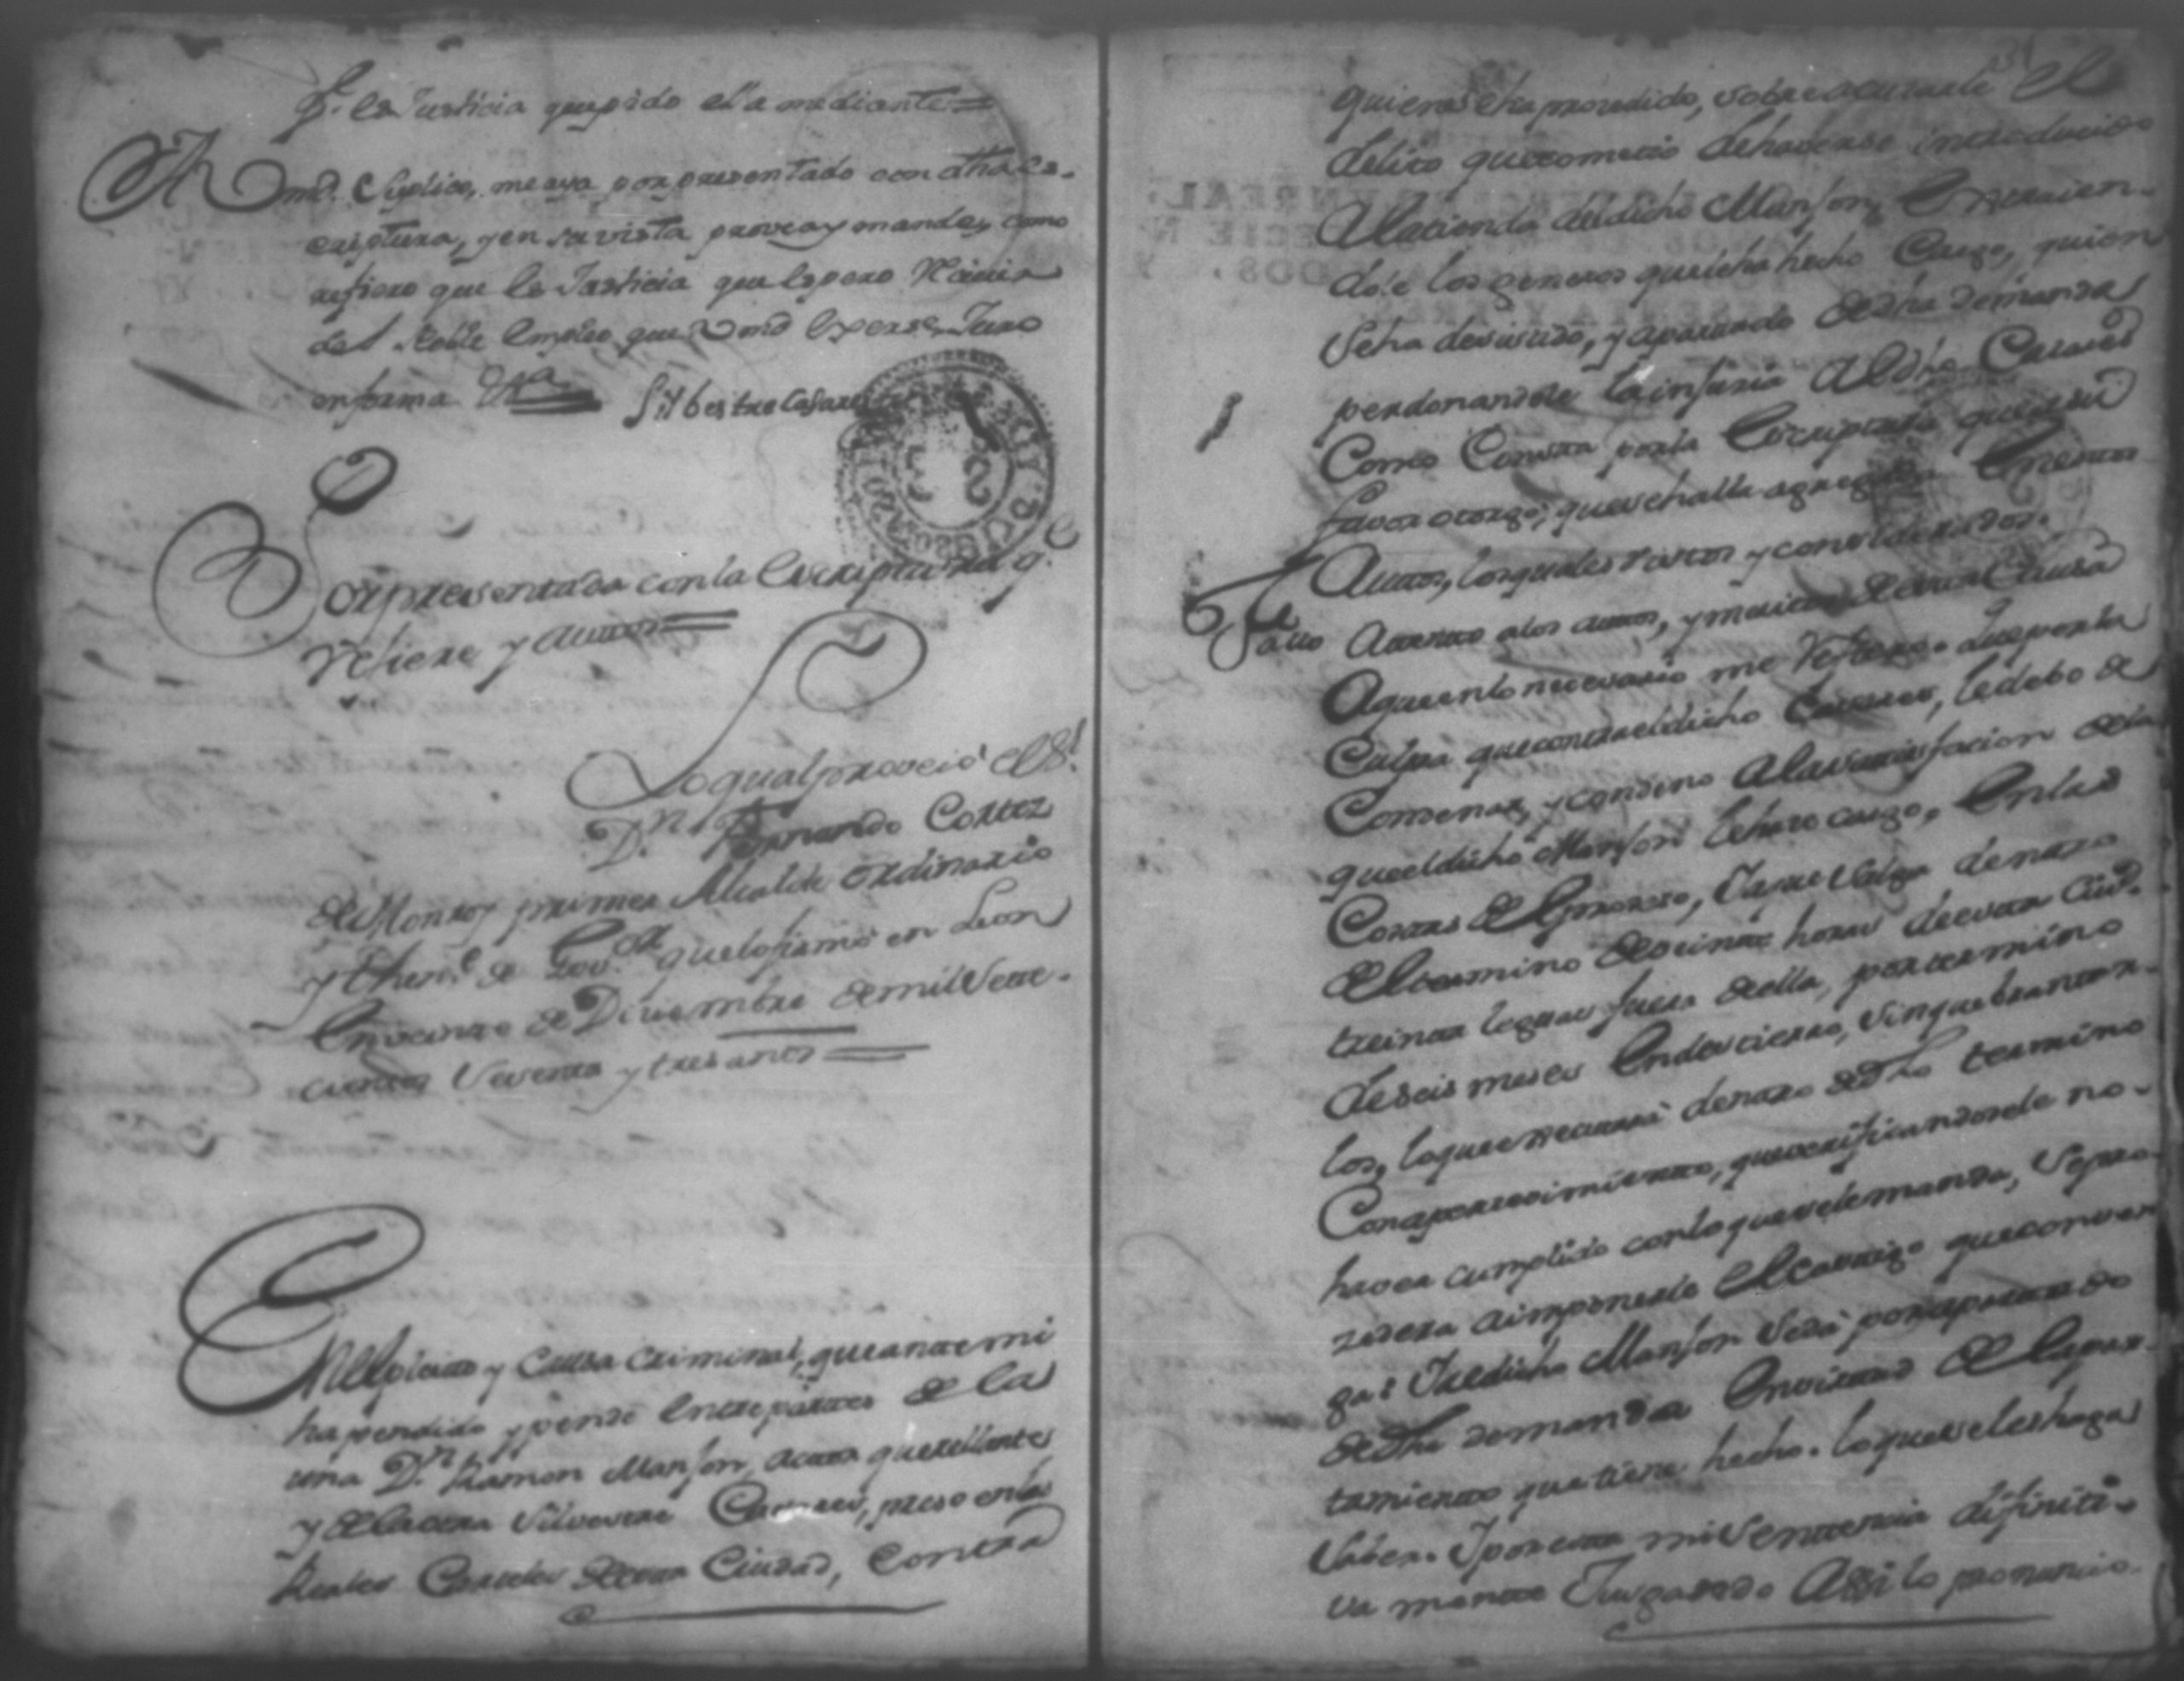 Pr. la Justicia que pido ella mediante =
A Vmd. Suplico, me aya por presentado con dha es-
criptura, y en su vista provea y mande, como
refiero que es Justicia que espero recivir
del Noble empleo que Vmd exerse, Juro
en forma Vtta
Silbestre Casares
Por presentada con la Escriptura q.e
refiere y autos =
Lo qual proveió el S.r
D.n Fernando Cortez
de Monroy primer Alcalde ordinario
y Then.e de Gov.or que lo firmó en Leon
en veinte de Diciembre de mil sete-
cientos sesenta y tres años =
En el pleito y causa criminal, que ante mi
ha pendido y pende entre partes de la
una D.n Ramon Manson, actor querellante
y de la otra Silvestre Casares, preso en las
Reales Carceles de esta Ciudad, contra
quien se ha procedido, sobre acusarle el
delito que cometio de haverse introducido
a la tienda del dicho Manson,
dole los generos que le ha hecho cargo, quien
se ha desistido, y apartado de dha demanda
perdonandole la injuria al dho Casares
Como Consta por la Escriptura que a su
favor otorgó, que se halla agregada en estos
Autos, los quales vistos y considerados.
Fallo Atento a los autos, y meritos de esta Causa
a que en lo necesario me refiero. Que por la
Culpa que contra el dicho Casares, le debo de
Condenar, y condeno a la satisfacion de lo
que el dicho Manson le hizo cargo, en las
Costas de el Proceso, y a que salga dentro
de el termino de veinte horas de esta Ciud.
treinta leguas fuera de ella, por termino
de seis meses en destierro, sin quebrantar-
los, lo que executará dentro de dho termino
Con apercevimiento, que verificandosele no
haver cumplido con lo que se le manda, se pro-
zedera a imponerle el castigo que conven-
ga: Y al dicho Manson se da por apartado
de dha demanda en virtud de el apar-
tamiento que tiene hecho. lo que se les haga
saber. Y por esta mi Sentencia difiniti-
va mente Juzgando Assi lo pronuncio